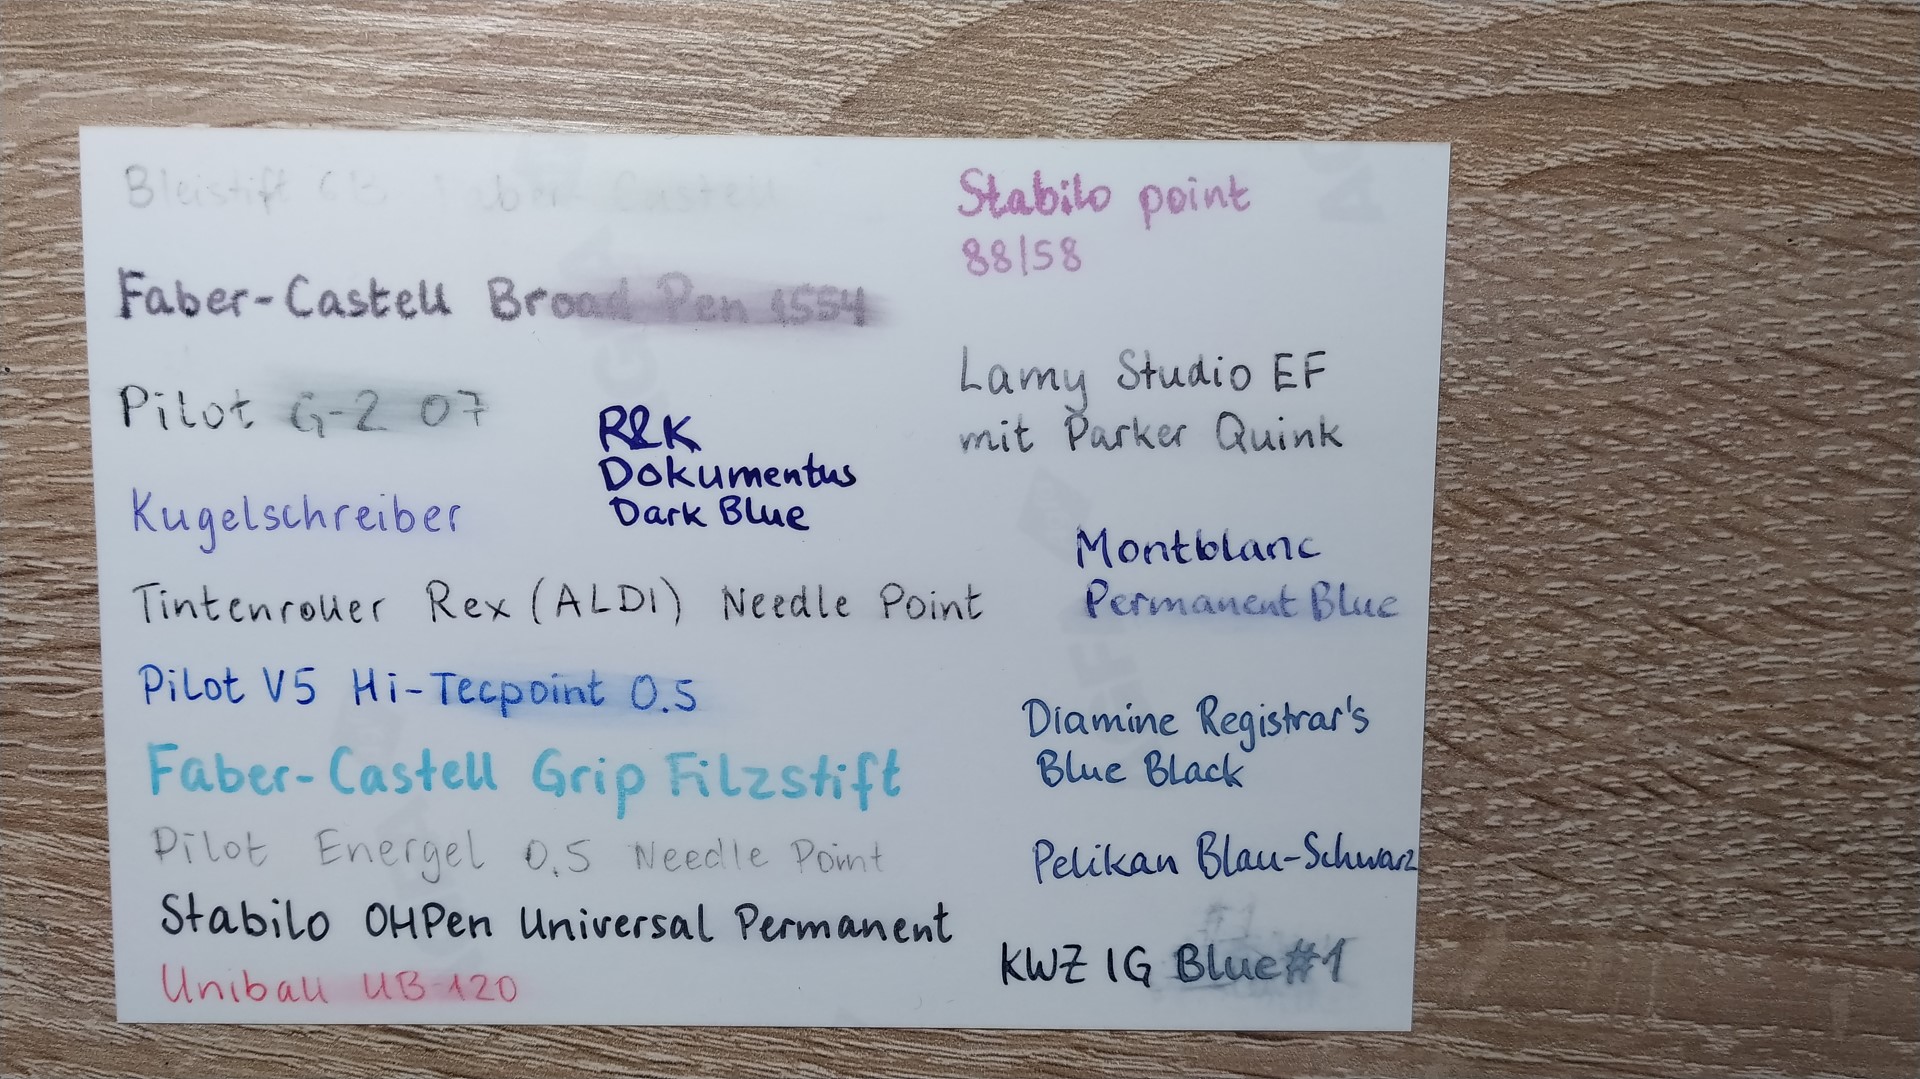 Bleistift
Faber-Castell Broad Pen 1554
Pilot G-2 07
Kugelschreiber
Tintenroller Rex (ALDI) Needle Point
Pilot V5 Hi-Tecpoint 0.5
Faber-Castell Grip Filzstift
Pilot Energel 0,5 Needle Point
Stabilo OHPen Universal Permanent
Uniball UB-120
R&K
Dokumentus
Dark Blue
Stabilo point
88/58
Lamy Studio EF
mit Parker Quink
Montblanc
Permanent Blue
Diamine Registrar's
Blue Black
Pelikan Blau-Schwarz
KWZ IG Blue #1